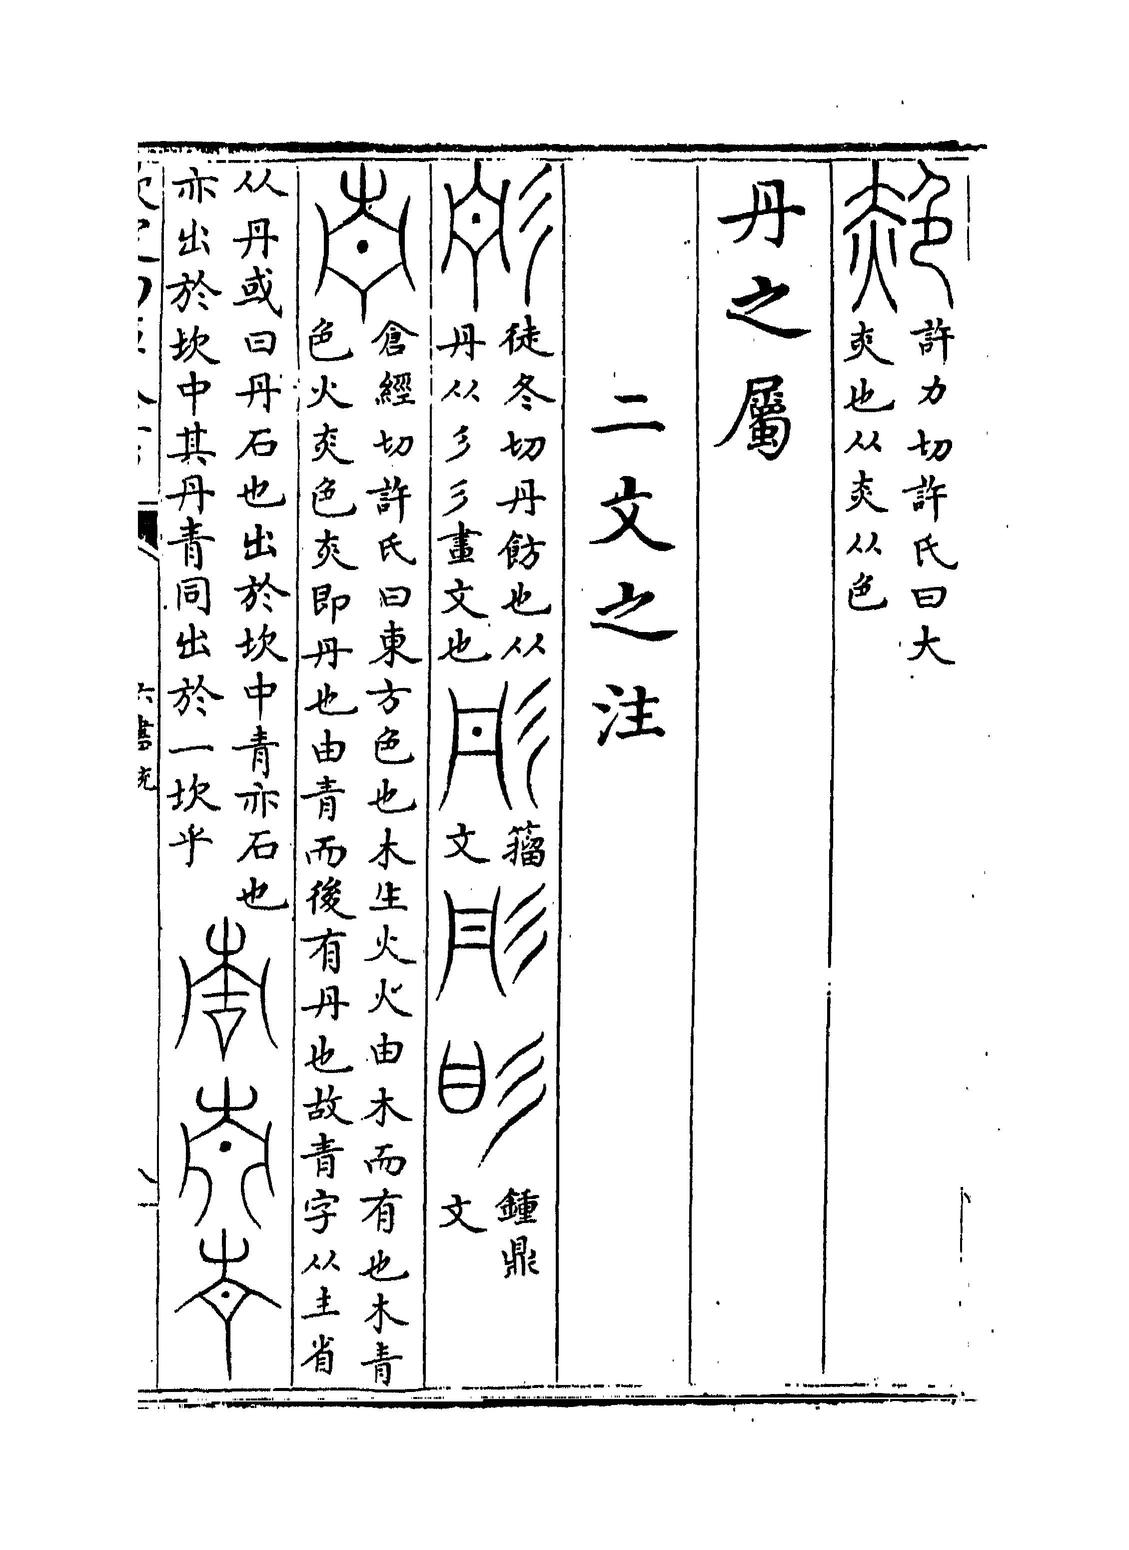 赩
許力切許氏曰大
赤也从赤从色
丹之屬
二文之注
彤
徒冬切丹飭也从
丹从彡彡畫文也
彤
籀
文
彤
彤
鍾鼎
文
青
倉經切許氏曰東方色也木生火火由木而有也木青
色火赤色赤即丹也由青而後有丹也故青字从主省
从丹或曰丹石也出於坎中青亦石也
亦出於坎中其丹青同出於一坎乎
青
青
青